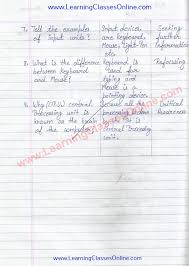 www.LearningClassesOnline.com
7. Tell the examples of input units? Input devices are Keyboard, Mouse, Light Pen etc. Seeking further Information
8. What is the difference between Keyboard and Mouse? Keyboard is used for typing and Mouse is a pointing device. Refocusing
9. Why (C.P.U) central Processing unit is known as the brain of the computer Because all the processing is done in central Processing unit. Critical Awareness
www.LearningClassesOnline.com
www.LearningClassesOnline.com